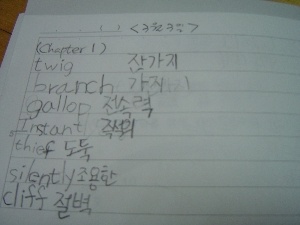 (Chapter 1)
twig 잔가지
branch 가지
gallop 전속력
Instant 즉석의
thief 도둑
silently 조용한
cliff 절벽